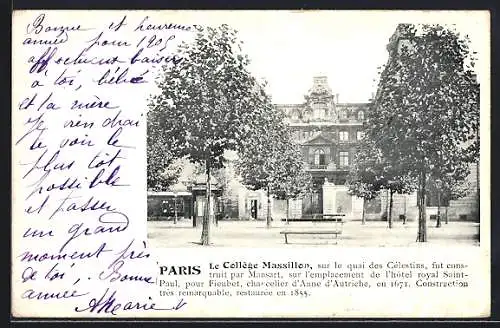 Bonne et heureuse
année pour 1905
affectueux baisers
à toi, bébé
et ta mère
Je viendrai
te voir le
plus tôt
possible
et passer
un grand
moment près
de toi, Bonne
année Marie
PARIS Le Collège Massillon, sur le quai des Célestins, fut cons-
truit par Mansart, sur l'emplacement de l'hôtel royal Saint-
Paul, pour Fieubet, chancelier d'Anne d'Autriche, en 1671. Construction
très remarquable, restaurée en 1855.